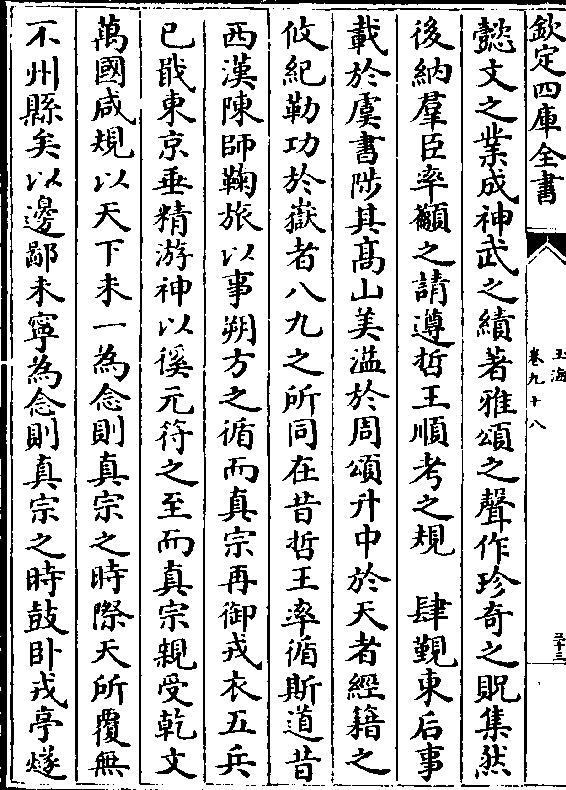 欽定四庫全書
玉海
卷九十八
三十三
懿文之業成神武之績著雅頌之聲作珍奇之貺集然
後納羣臣率籲之請遵哲王順考之規　肆覲東后事
載於虞書陟其髙山美溢於周頌升中於天者經籍之
攸紀勒功於嶽者八九之所同在昔哲王率循斯道昔
西漢陳師鞠旅以事朔方之循而真宗再御戎衣五兵
已戢東京垂精游神以徯元符之至而真宗親受乾文
萬國咸規以天下未一為念則真宗之時際天所覆無
不州縣矣以邊鄙未寧為念則真宗之時鼓卧戎亭燧